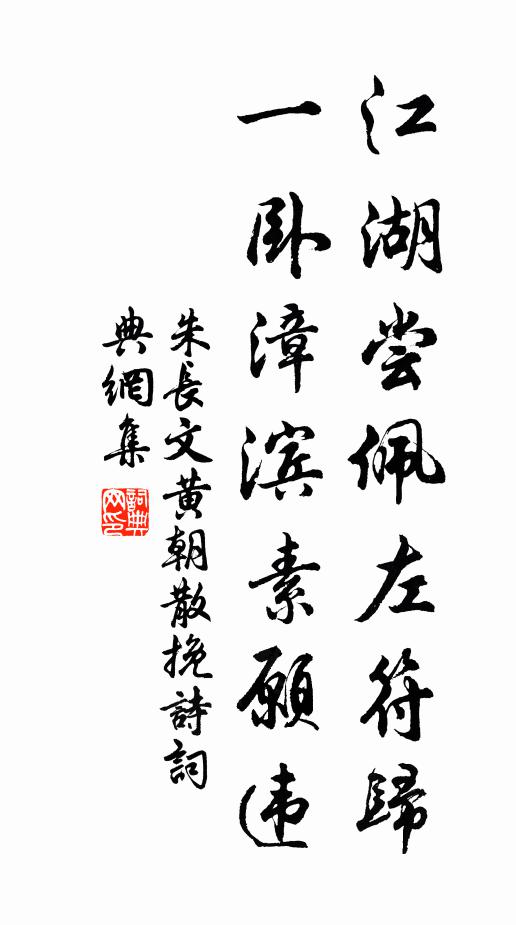 江湖尝佩左符歸
一卧漳滨素願违
朱長文黄朝散挽詩詞
典網集
詞典网印